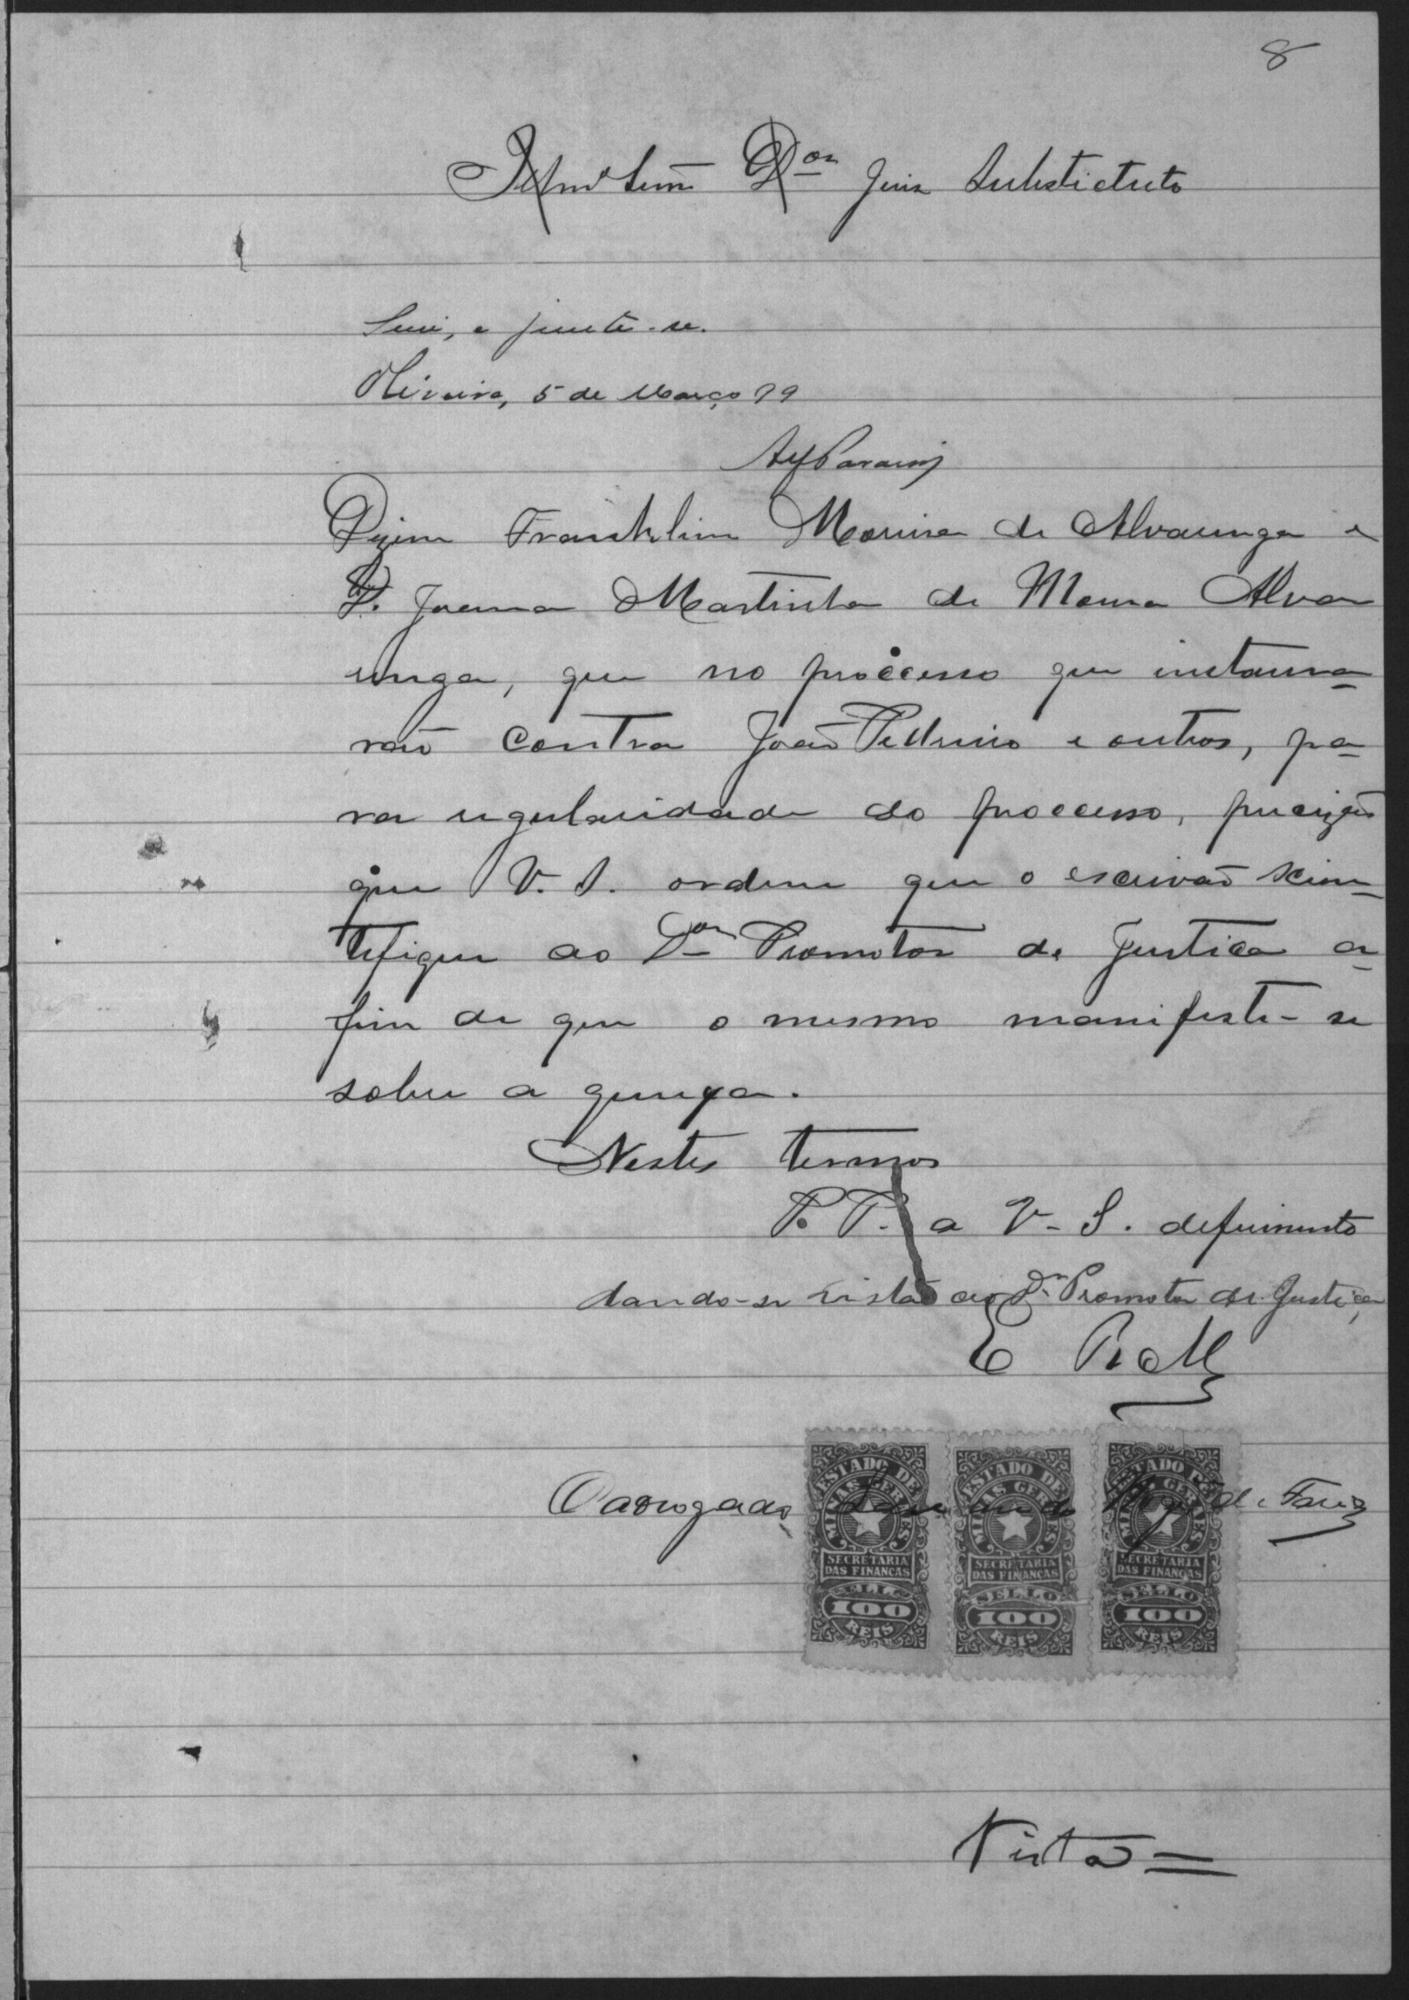 8
Illmo Senr Dor Juiz Substictuto
Sim, e junte-se.
Oliveira, 5 de Março 99
Dizem Franklim Moreira de Alvarenga e
D. Joanna Martinha de Moura Alva
renga, que no processo que instaura-
rão contra João Pedreiro e outros, pa-
ra regularidade do processo, precizão
que V. S. ordene que o escrivão scien-
tifique ao Dor Promotor de Justica a-
fim de que o mesmo manifeste-se
sobre a queixa.
Nestes termos
P. P. a V. S. deferimento
dando-se vista ao Dr. Promotor de Justiça,
E R M
O advogado, de Faria
ESTADO DE MINAS GERAES
SECRETARIA DAS FINANÇAS
SELLO
100
REIS
ESTADO DE MINAS GERAES
SECRETARIA DAS FINANÇAS
SELLO
100
REIS
ESTADO DE MINAS GERAES
SECRETARIA DAS FINANÇAS
SELLO
100
REIS
Vista